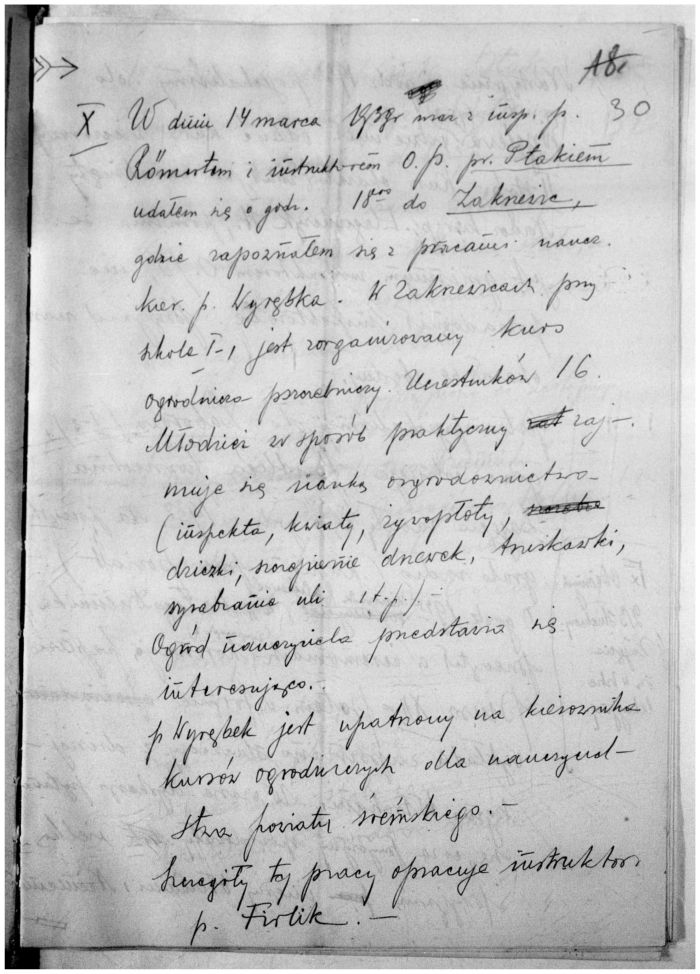 X W dniu 14 marca 1939r wraz z insp. p. 30
Römerłem i instruktorem O.P. pr. Ptakiem
udałem się o godz. 18 do Zakrzewic,
gdzie zapoznałem się z pracami naucz.
kier. p. Wyrębka. W Zakrzewicach przy
szkole I-, jest zorganizowany kurs
ogrodniczo pszczelniczy. Uczestników 16.
Młodzież w sposób praktyczny zaj-
muje się nauką ogrodownictwa
(inspekta, kwiaty, żywopłoty,
dziczki, szczepienie drzewek, truskawki,
wyrabianie uli i t.p.).-
Ogród nauczyciela przedstawia się
interesująco.-
p Wyrębek jest upatrzony na kierownika
kursów ogrodniczych dla nauczyciel-
stwa powiatu śremskiego.-
Szczegóły tej pracy opracuje instruktor
p. Firlik.-